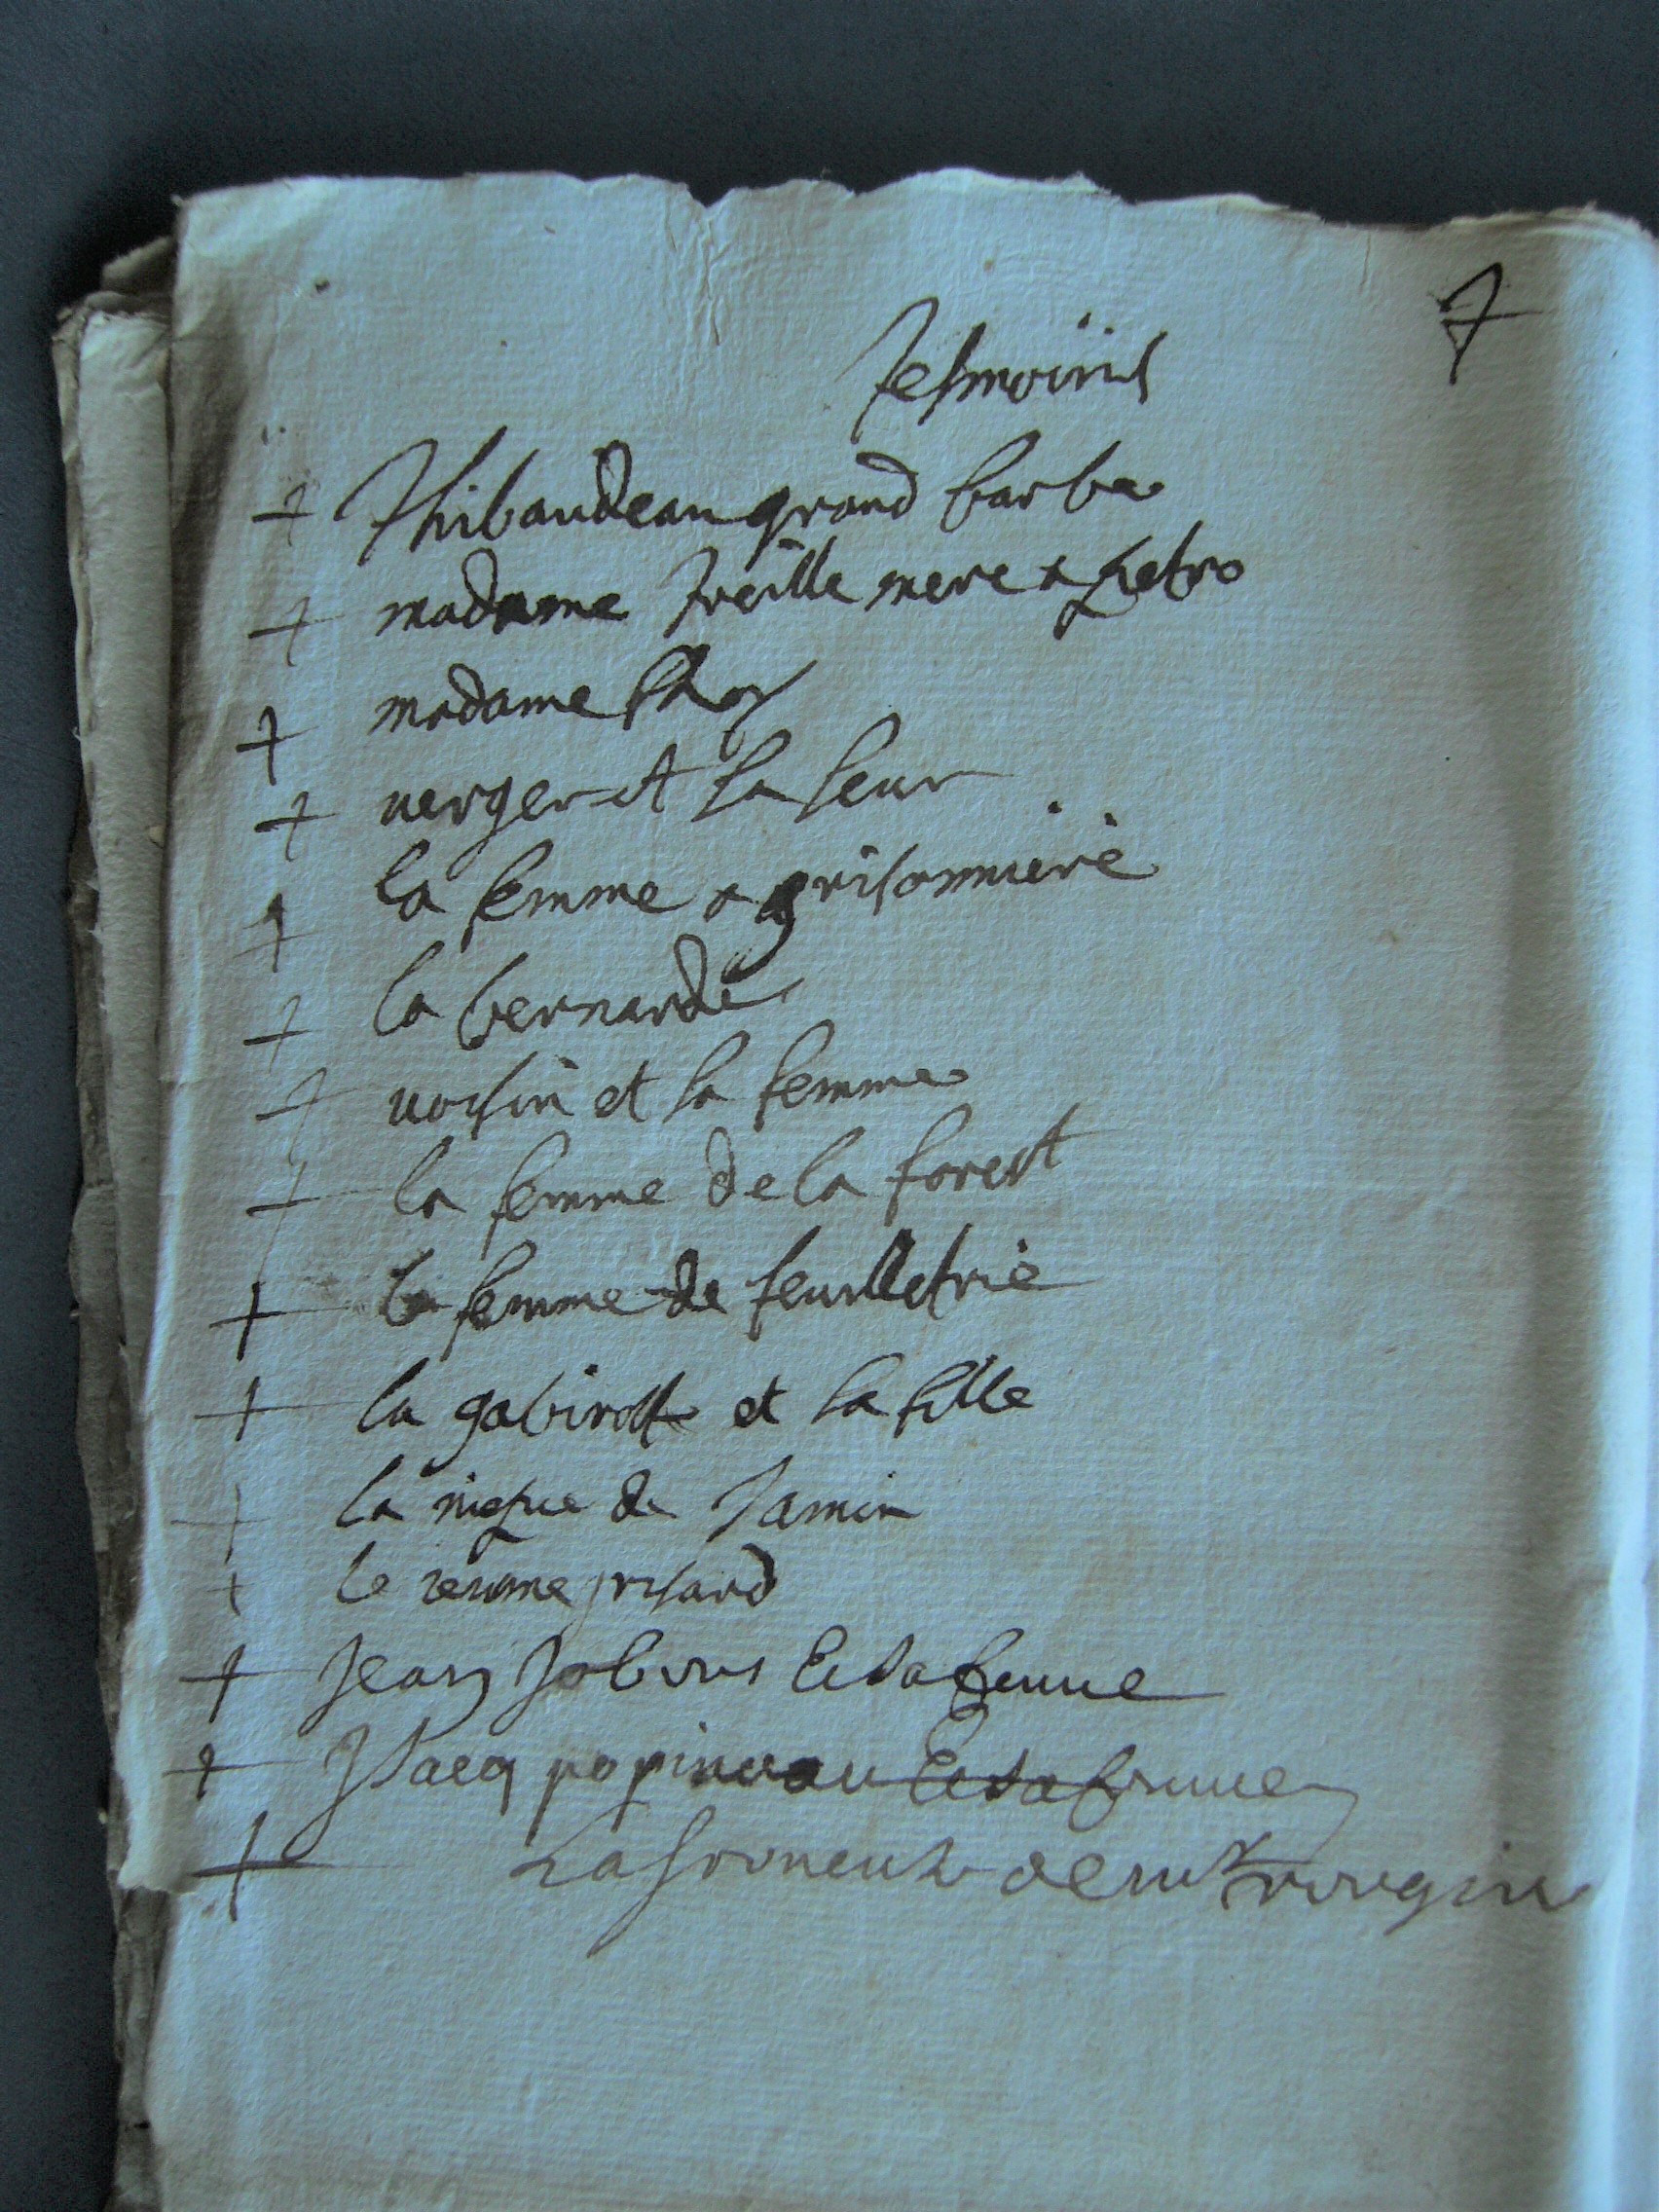 7
Tesmoins
+ Thibaudeau grand barbe
+ madame treille mere
+ madame
+ verger et sa seur
+ la femme a grisonniere
+ la bernarde
+ voisin et sa femme
+ la femme de la forest
+ la femme de feuilletrie
+ la gabirotte et sa fille
+ la niepce de Jamin
+ le jeusne prisard
+ Jean Jobins Et sa femme
+ Isacq popineau Et sa femme
+ La